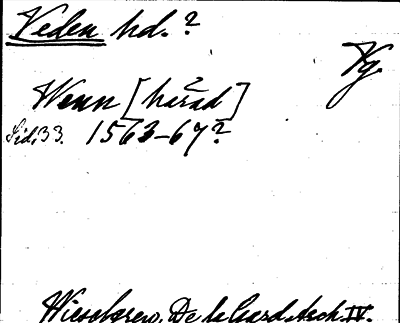 Veden hd. ?
Vg.
Wenn [härad]
Sid. 33. 1563-67?
Wieselgren, De la Gard. Arch. IV.